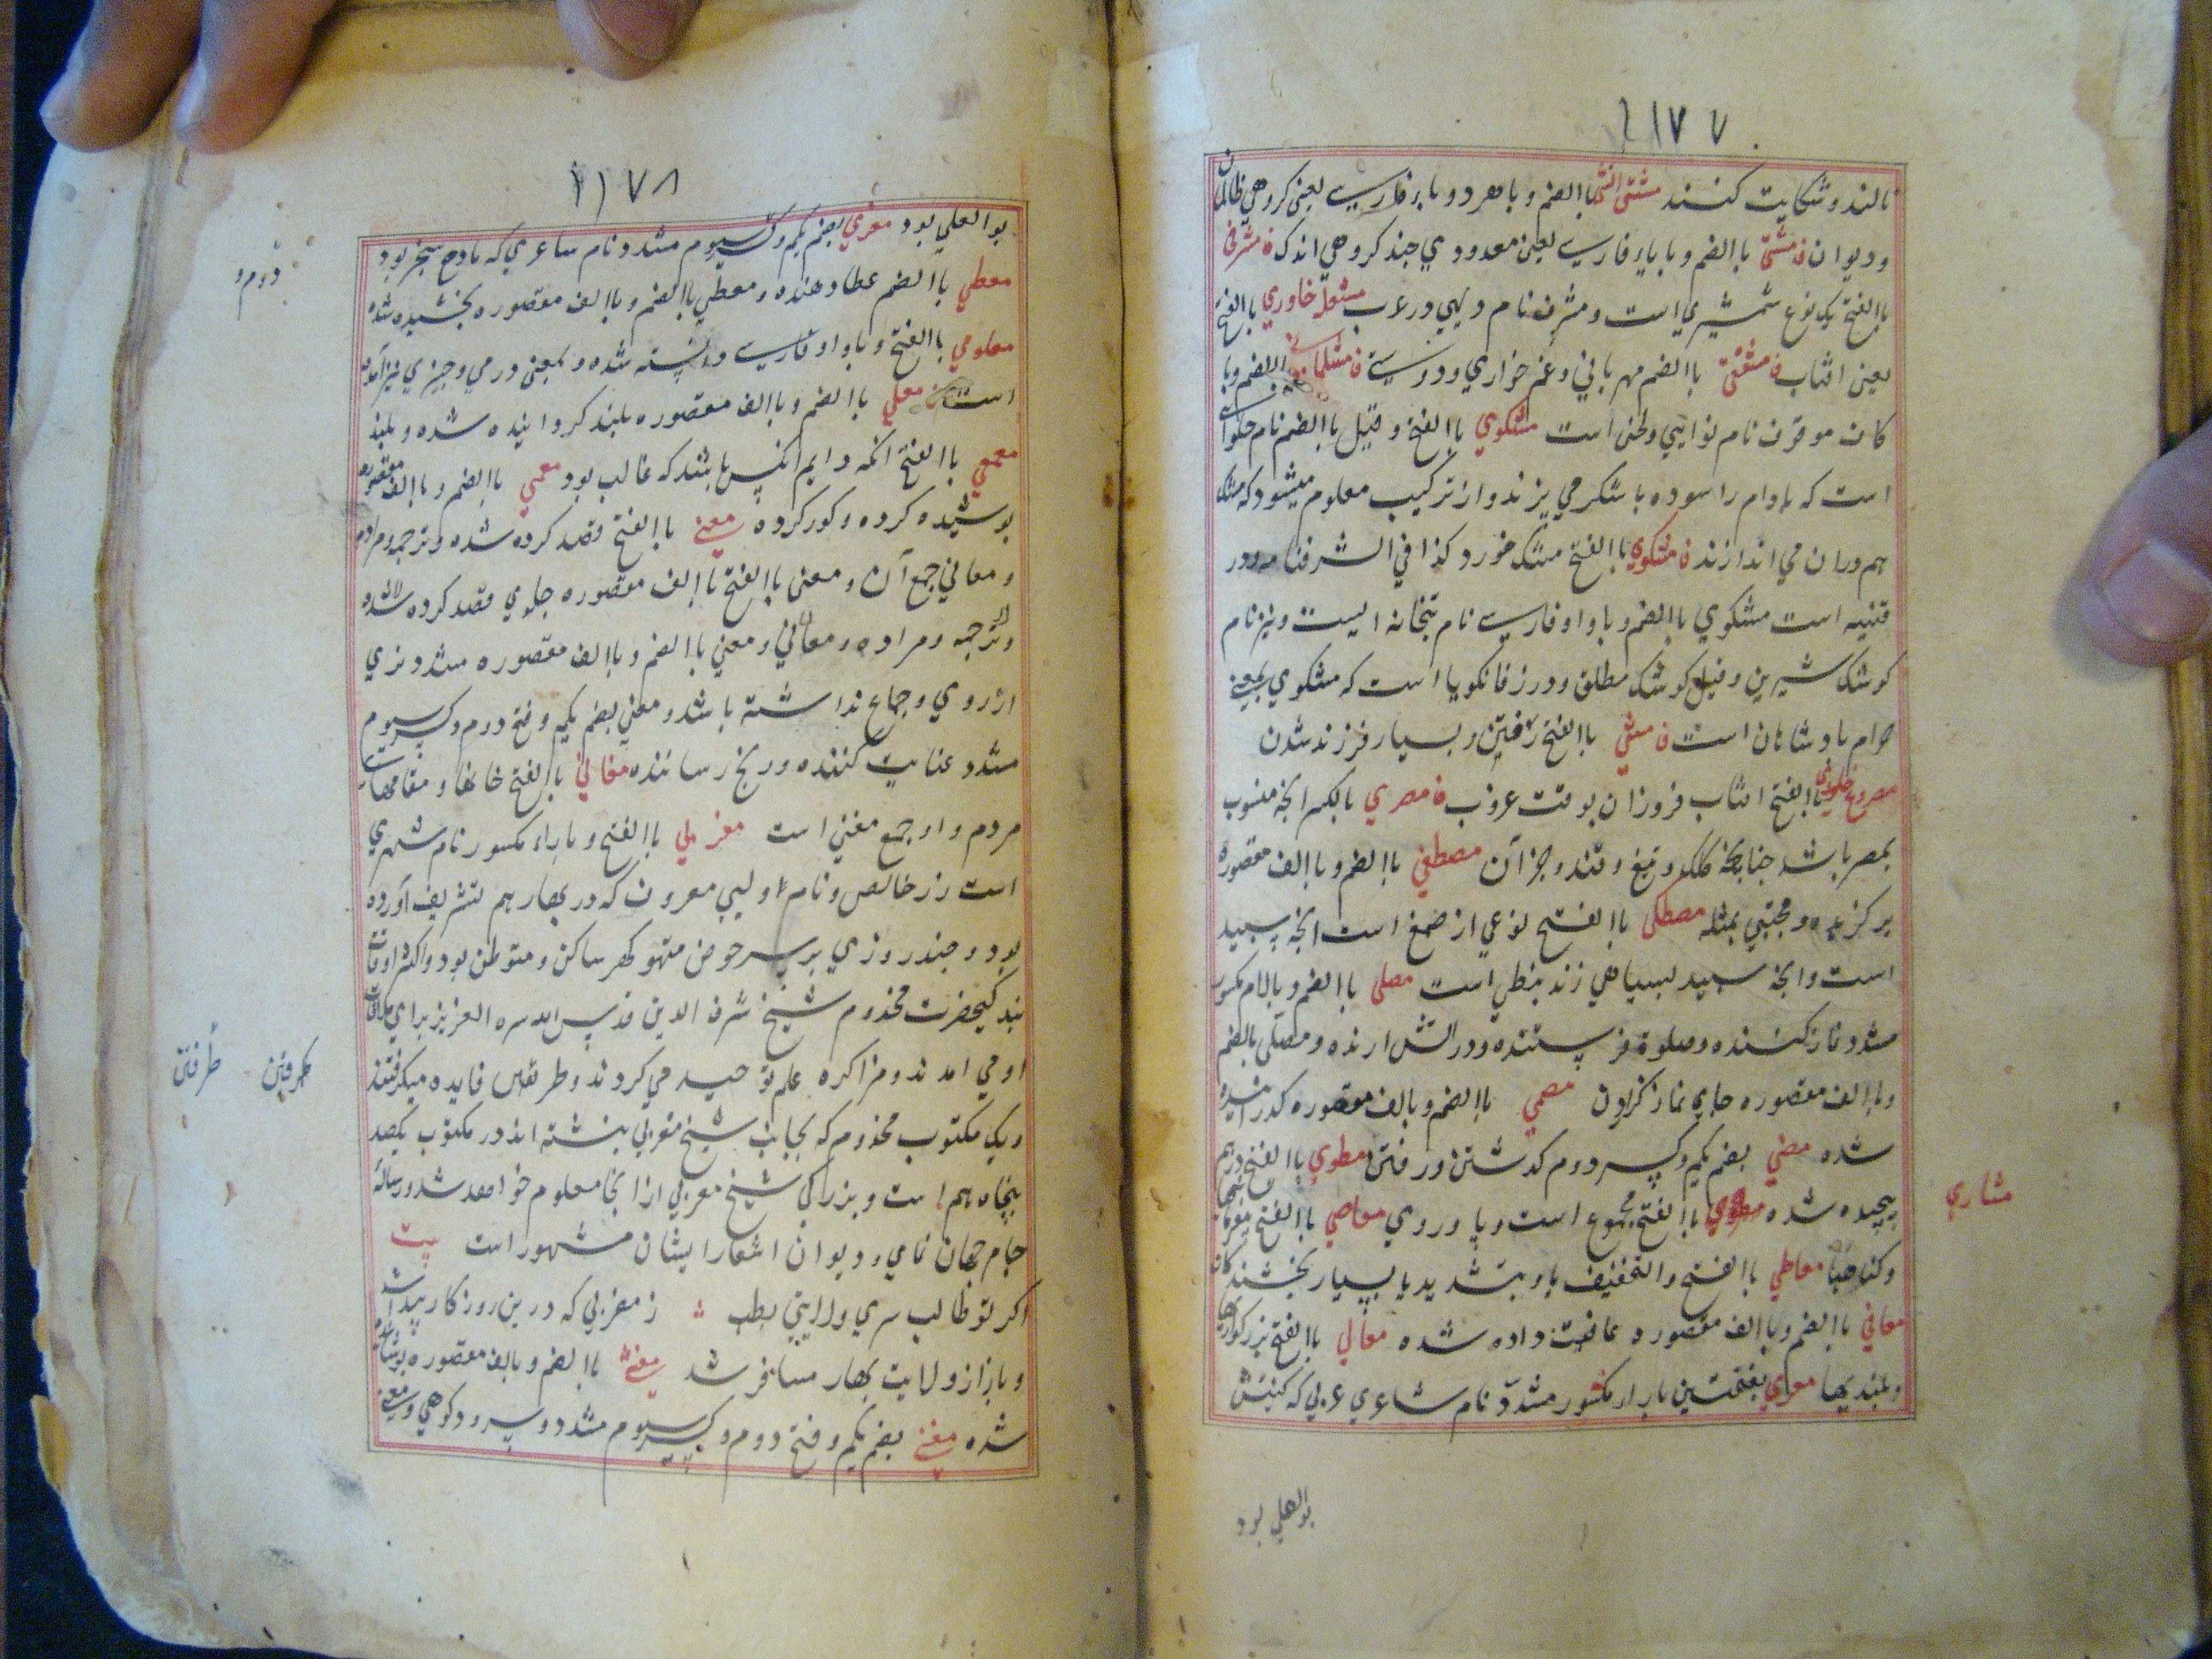 ۱۱۷۷
نالند و شکایت کنند مشتی باالضم و باهر دو یاء فارسے یعنی کروهی ظالمان
و دیوان ف مشتی باالضم و با یاء فارسے یعنی معدودي چند کروهي اندک ف مشرفی
باالفتح یک نوع شمشیري است و مشرف نام دیهي در عرب مشعلهٔ خاوري باالفتح
یعنی افتاب ف مشفقی باالضم مهربانی و غم خواري و دوستے ف باالضم و با
کاف موقوف نام نوایي و لحنی است مشکوي باالفتح و قیل باالضم نام حلوائے
است که بادام را سوده با شکر می پزند و از ترکیب معلوم میشود که مشک
هم دران می اندازند ف مشکوي باالفتح مشک خورد کذا في الشرفنامه و در
قنیه است مشکوي باالضم و با واو فارسے نام بتخانه ایست و نیز نام
کوشک شیرین و قیل کوشک مطلق و در زفانکویا است که مشکوي بمعنے
حرام پادشاهان است ف مشی باالفتح رفتن و بسیار فرزند شدن
باالفتح افتاب فروزان بوقت غروب ف مصري باالکسر انچه منسوب
بمصر باشد چنانکه کلک و تیغ و قند و جز آن مصطفی باالضم و باالف مقصوره
برکزیده و مجتبی بمثله مصطکی باالفتح نوعي از صمغ است انچه سپید
است و انچه سپید بسیاهی زند نبطي است مصلی باالضم و بالام مکسور
مشدد نماز کننده و صلوة فرستنده و در آتش ارنده و مصلّی باالضم
و باالف مقصوره جاي نماز کزاردن باالضم و باالف مقصوره
شده مضي بضم یکم و کسر دوم کذشتن و رفتن مطوي باالفتح درهم
پیچیده شده باالفتح مجموع است و یا وروي معاصي باالفتح
مشاري
و کناهها معاطي باالفتح و التخفیف یا و بتشدید یا بسیار بخشندکان
معافي باالضم و باالف مقصوره عافیت داده شده معالي باالفتح بزرکواریها
و بلندیها معري بفتحتین با راء مکسور مشدد نام شاعري عربي که کنیتش
بوالعلي بود
۱۱۷۸
بوالعلي بود معزي بضم یکم و کسر سیوم مشدد نام شاعري که مادح سنجر بود
دوم و
معطي باالضم عطا دهنده و معطي باالضم و باالف مقصوره بخشیده شده
معلومي باالفتح و باواو فارسے دانسته شده و بمعنی درمي و چیزي نیز آمده
است معلي باالضم و باالف مقصوره بلند کردانیده شده و بلند
معمعي باالفتح انکه دایم انکس باشد که غالب بود معمي باالضم و باالف مقصوره
پوشیده کرده و کور کرده معنے باالفتح قصد کرده شده و ترجمه و مراد
و معاني جمع آن و معنی باالفتح باالف مقصوره جلوي قصد کرده شده
و ترجمه و مراده و معاني و معني باالضم و باالف مقصوره مشدد نزي
ارزوي و جماع نداشته باشد و معني بضم یکم و فتح دوم و کسر سیوم
مشدد عنایت کننده و رنج رساننده مغاني باالفتح خانها و مقامهاے
مردم و او جمع مغني است مغربي باالفتح و با راء مکسور نام شهري
است و زر خالص و نام اولیي معروف که در بهار هم تشریف آورده
بود و چند روزي بر سر حوض ساکن و متوطن بود و اکثر اوقات
بندکیحضرت مخدوم شیخ شرف الدین قدس الله سره العزیز براي ملاقات
او مي امدند و مذاکره علم توحید می کردند و طرفین فایده میکرفتند
طرفین طرفین
و یک مکتوب مخدوم که بجانب شیخ مغربي نبشته اند در مکتوب یکصد
پنجاه هم است و بزرکي شیخ مغربي از انجا معلوم خواهد شد و رساله
جام جهان نامي و دیوان اشعار ایشان مشهور است بیت
اکر تو طالب سري ولایتي بطلب ز مغربي که درین روزکار پیدا شد
و باز از ولایت بهار مسافر شد مغنے باالضم و باالف مقصوره
شده مغنے بضم یکم و فتح دوم و کسر سیوم مشدد و سرودکوهي و معنے